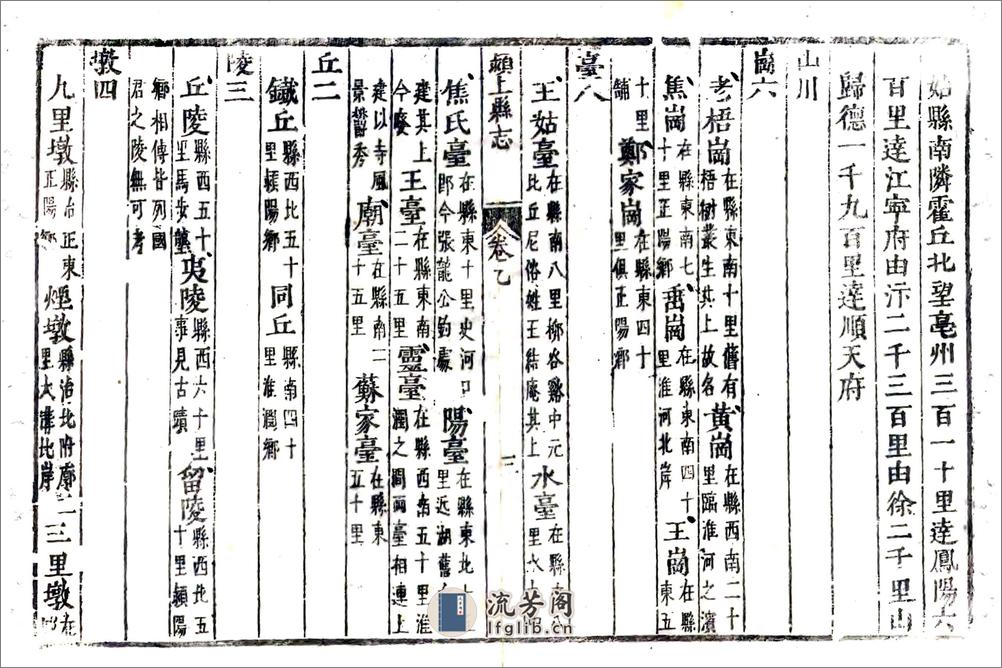 姑縣南隣霍丘北望亳州三百一十里達鳳陽六
百里達江寧府由汴二千三百里由徐二千里山
歸德一千九百里達順天府
山川
崗六
考梧崗在縣東南十里舊有梧樹叢生其上故名黃崗在縣西南二十里臨淮河之濱
焦崗在縣東南七十里正陽鄉 崗在縣東南四十里淮河北岸王崗在縣東五
十里舖鄭家崗在縣東四十里俱正陽鄉
臺八
王姑臺在縣南八里柳谷谿中元比丘尼俗姓王結庵其上水臺在縣南
潁上縣志 卷之 三
焦氏臺在縣東十里史河口即今張龍公釣處陽臺在縣東北
建其上今廢王臺在縣東南二十五里靈臺在縣西南五十里淮潤之間兩臺相連上
建以寺風景督秀廟臺在縣南二十五里蘇家臺在縣東五十里
丘二
鐵丘縣西北五十里潁陽鄉同丘縣南四十里淮潤鄉
陵三
丘陵縣西五十里馬步 夷陵縣西六十里事見古蹟留陵縣西北五十里潁陽
鄉相傳皆列國君之陵無可考
墩四
九里墩縣治正東正陽鄉煙墩縣治北附廓里大溝北岸二三里墩在
流芳阁
lfglib.cn